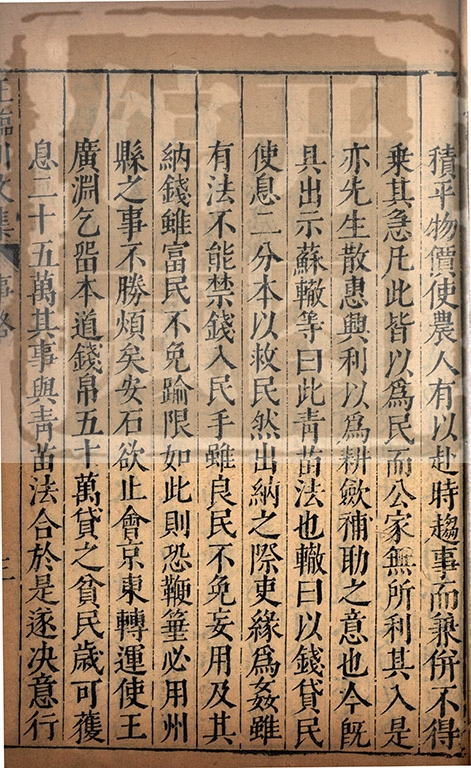 積平物價使農人有以赴時趨事而兼併不得
乗其急凡此皆以爲民而公家無所利其入是
亦先生散惠興利以爲耕斂補助之意也今既
具出示蘇轍等曰此青苗法也轍曰以錢貸民
使息二分本以救民然出納之際吏緣爲姦雖
有法不能禁錢入民手雖良民不免妄用及其
納錢雖富民不免踰限如此則恐鞭箠必用州
縣之事不勝煩矣安石欲止會京東轉運使王
廣淵乞畱本道錢帛五十萬貸之貧民歲可獲
息二十五萬其事與青苗法合於是遂决意行
王臨川文集 事略 三